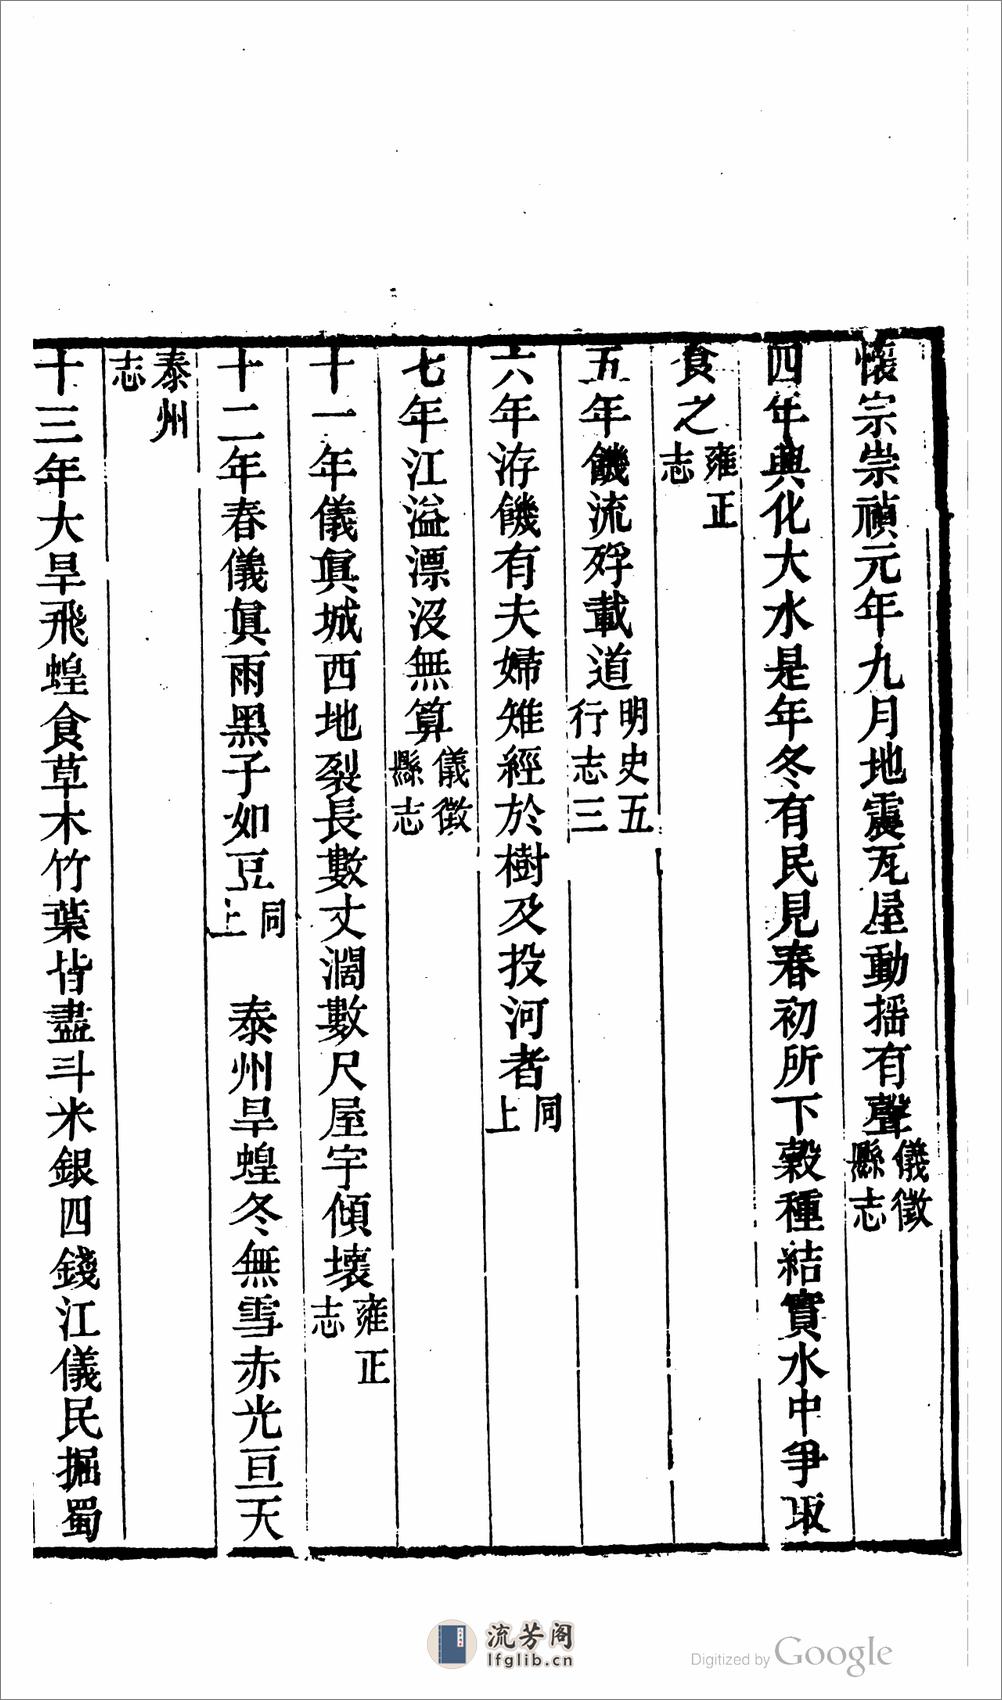 懷宗崇禎元年九月地震瓦屋動揺有聲儀徵縣志
四年興化大水是年冬有民見春初所下穀種結實水中爭取
食之雍正志
五年饑流殍載道明史五行志三
六年洊饑有夫婦雉經於樹及投河者同上
七年江溢漂沒無算儀徵縣志
十一年儀眞城西地裂長數丈濶數尺屋宇傾壞雍正志
十二年春儀眞雨黑子如豆同上 泰州旱蝗冬無雪赤光亘天
泰州志
十三年大旱飛蝗食草木竹葉皆盡斗米銀四錢江儀民掘蜀
流芳阁
lfglib.cn
Digitized by Google